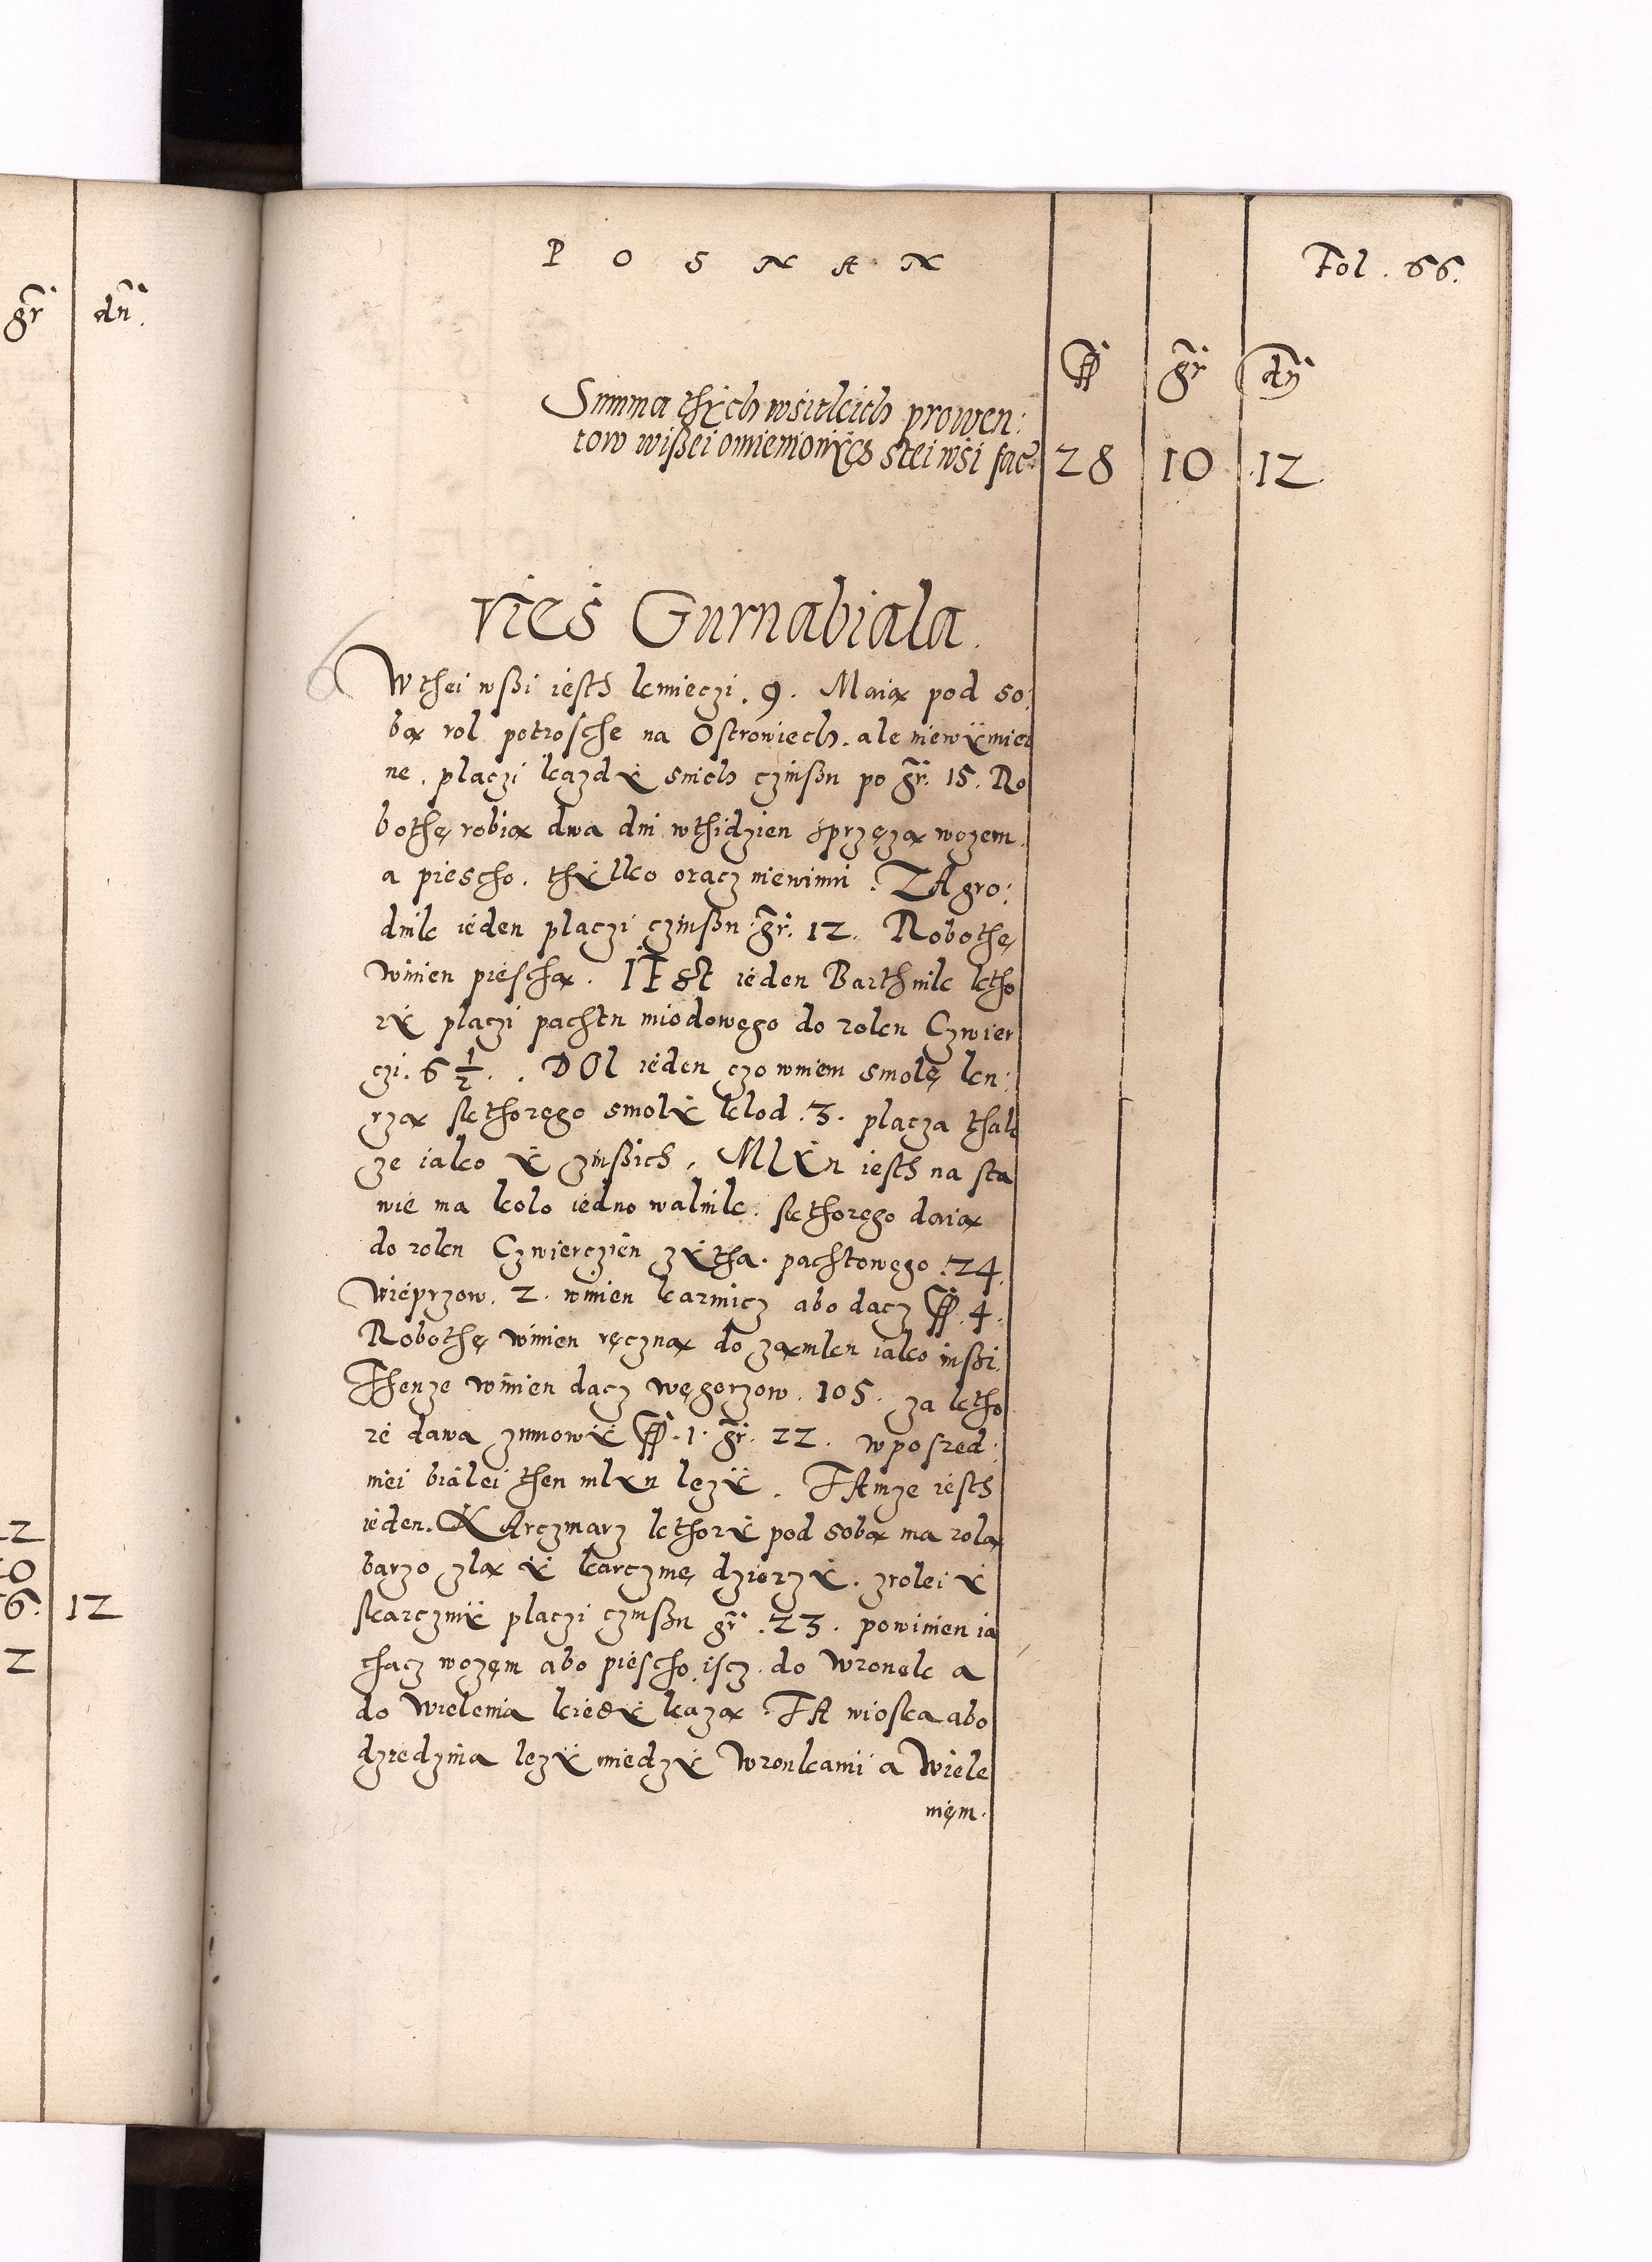 gr dn.
P O S N A N
Fol. 66.
ff gr dn
Summa thÿch wsitkich prowen:
tow wißei omienionÿch stei wsi fac. 28 10 12
Vies Gurnabiala.
W thei wßi iesth kmieczi. 9. Maią pod so:
bą rol potrosche na Ostrowiech. ale niewÿmier
ne. płaczi kazdÿ snich czinßu po gr. 15. Ro
bothę robią dwa dni wthidzien sprzęzą wozem.
a piescho. thÿlko oracz niewinni. ZAgro:
dnik ieden płaczi czinßu gr. 12. Robothę
winien pieschą. IEst ieden Barthnik ktho
rÿ płaczi pachtu miodowego do roku Czwier
czi. 6 1/2. . DOl ieden czo wniem smolę ku:
rzą skthorego smolÿ klod. 3. placza thak
ze iako ÿ zinßich. MLÿn iesth na sta
wie ma kolo iedno walnik. skthorego daią
do roku Czwierczien zÿtha. pachtowego. 24.
Wieprzow. 2. winien karmicz abo dacz ff. 4.
Robothę winien ręczną do zamku iako inßi.
Thenze winien dacz węgorzow. 105. za ktho
re dawa zumowÿ ff. 1. gr. 22. wposred:
niei białei then mlyn lezÿ. TAmze iesth
ieden. KArczmarz kthorÿ pod sobą ma rolą
barzo złą ÿ karczmę dzierzÿ. zrolei ÿ
skarczmÿ płaczi czinßu gr. 23. powinien ia
chacz wozem abo piescho iscz. do Wronek a
do Wielenia kiedÿ każą. TA wioska abo
dziedzina lezÿ miedzÿ Wronkami a Wiele
niem.
12
0
6. 12
2